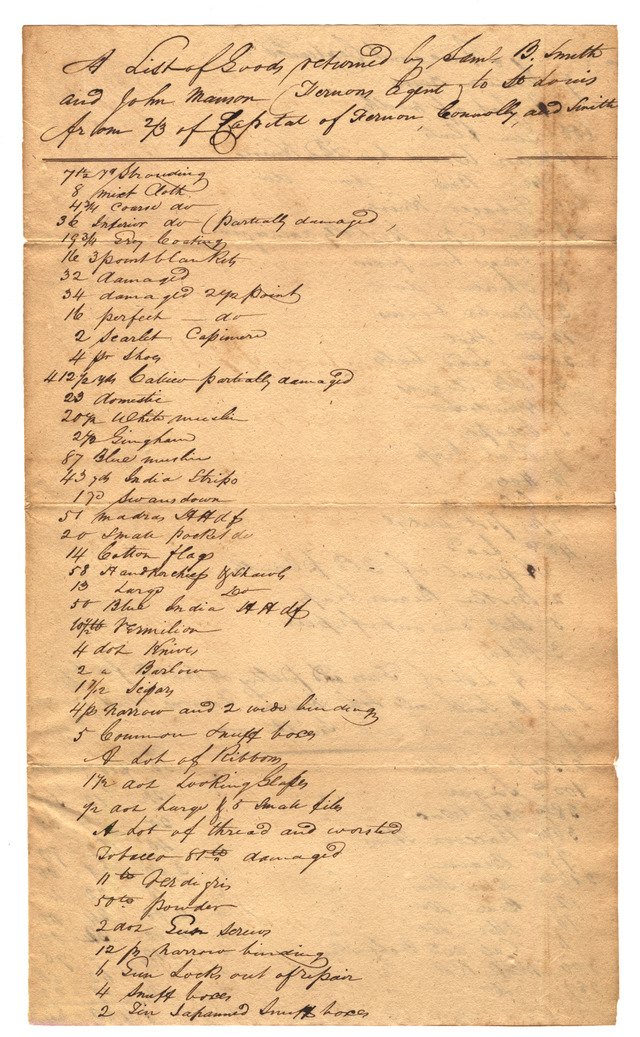 A List of Goods returned by Saml. B. Smith
and John Manson (Vernons Agent) to St Louis
from 2/3 of Capital of Vernon, Connolly, and Smith
7 1/2 yds Strouding
8 mixt Cloth
4 3/4 Coarse do
36 Inferior do (Partially damaged,
19 3/4 Grey Coating
16 3 point blankets
32 damaged
34 damaged 2 1/2 Point
16 perfect — do
2 Scarlet Casimere
4 pr Shoes
412 1/2 yds Calico partially damaged
23 domestic
20 1/2 White muslin
2 1/2 Gingham
87 Blue muslin
43 yds India Strips
1 yd Swansdown
51 madras HHdfs
20 Small pocket do
14 Cotton flags
58 Handkerchiefs & Shawls
13 Large Do
50 Blue India HHdfs
Vermilion
4 doz Knives
2 " Barlow
1 1/2 Scisars
4 ps narrow and 2 wide bindings
5 Common Snuff boxes
A Lot of Ribbons
1 1/2 doz Looking Glasses
1/2 doz Large & 5 Small files
A Lot of thread and worsted
Tobacco 81 lb damaged
11 lb Verdigris
50 lb powder
2 doz Gun Screws
12 ps narrow binding
6 Gun Locks out of repair
4 Snuff boxes
2 Tin Japanned Snuff boxes